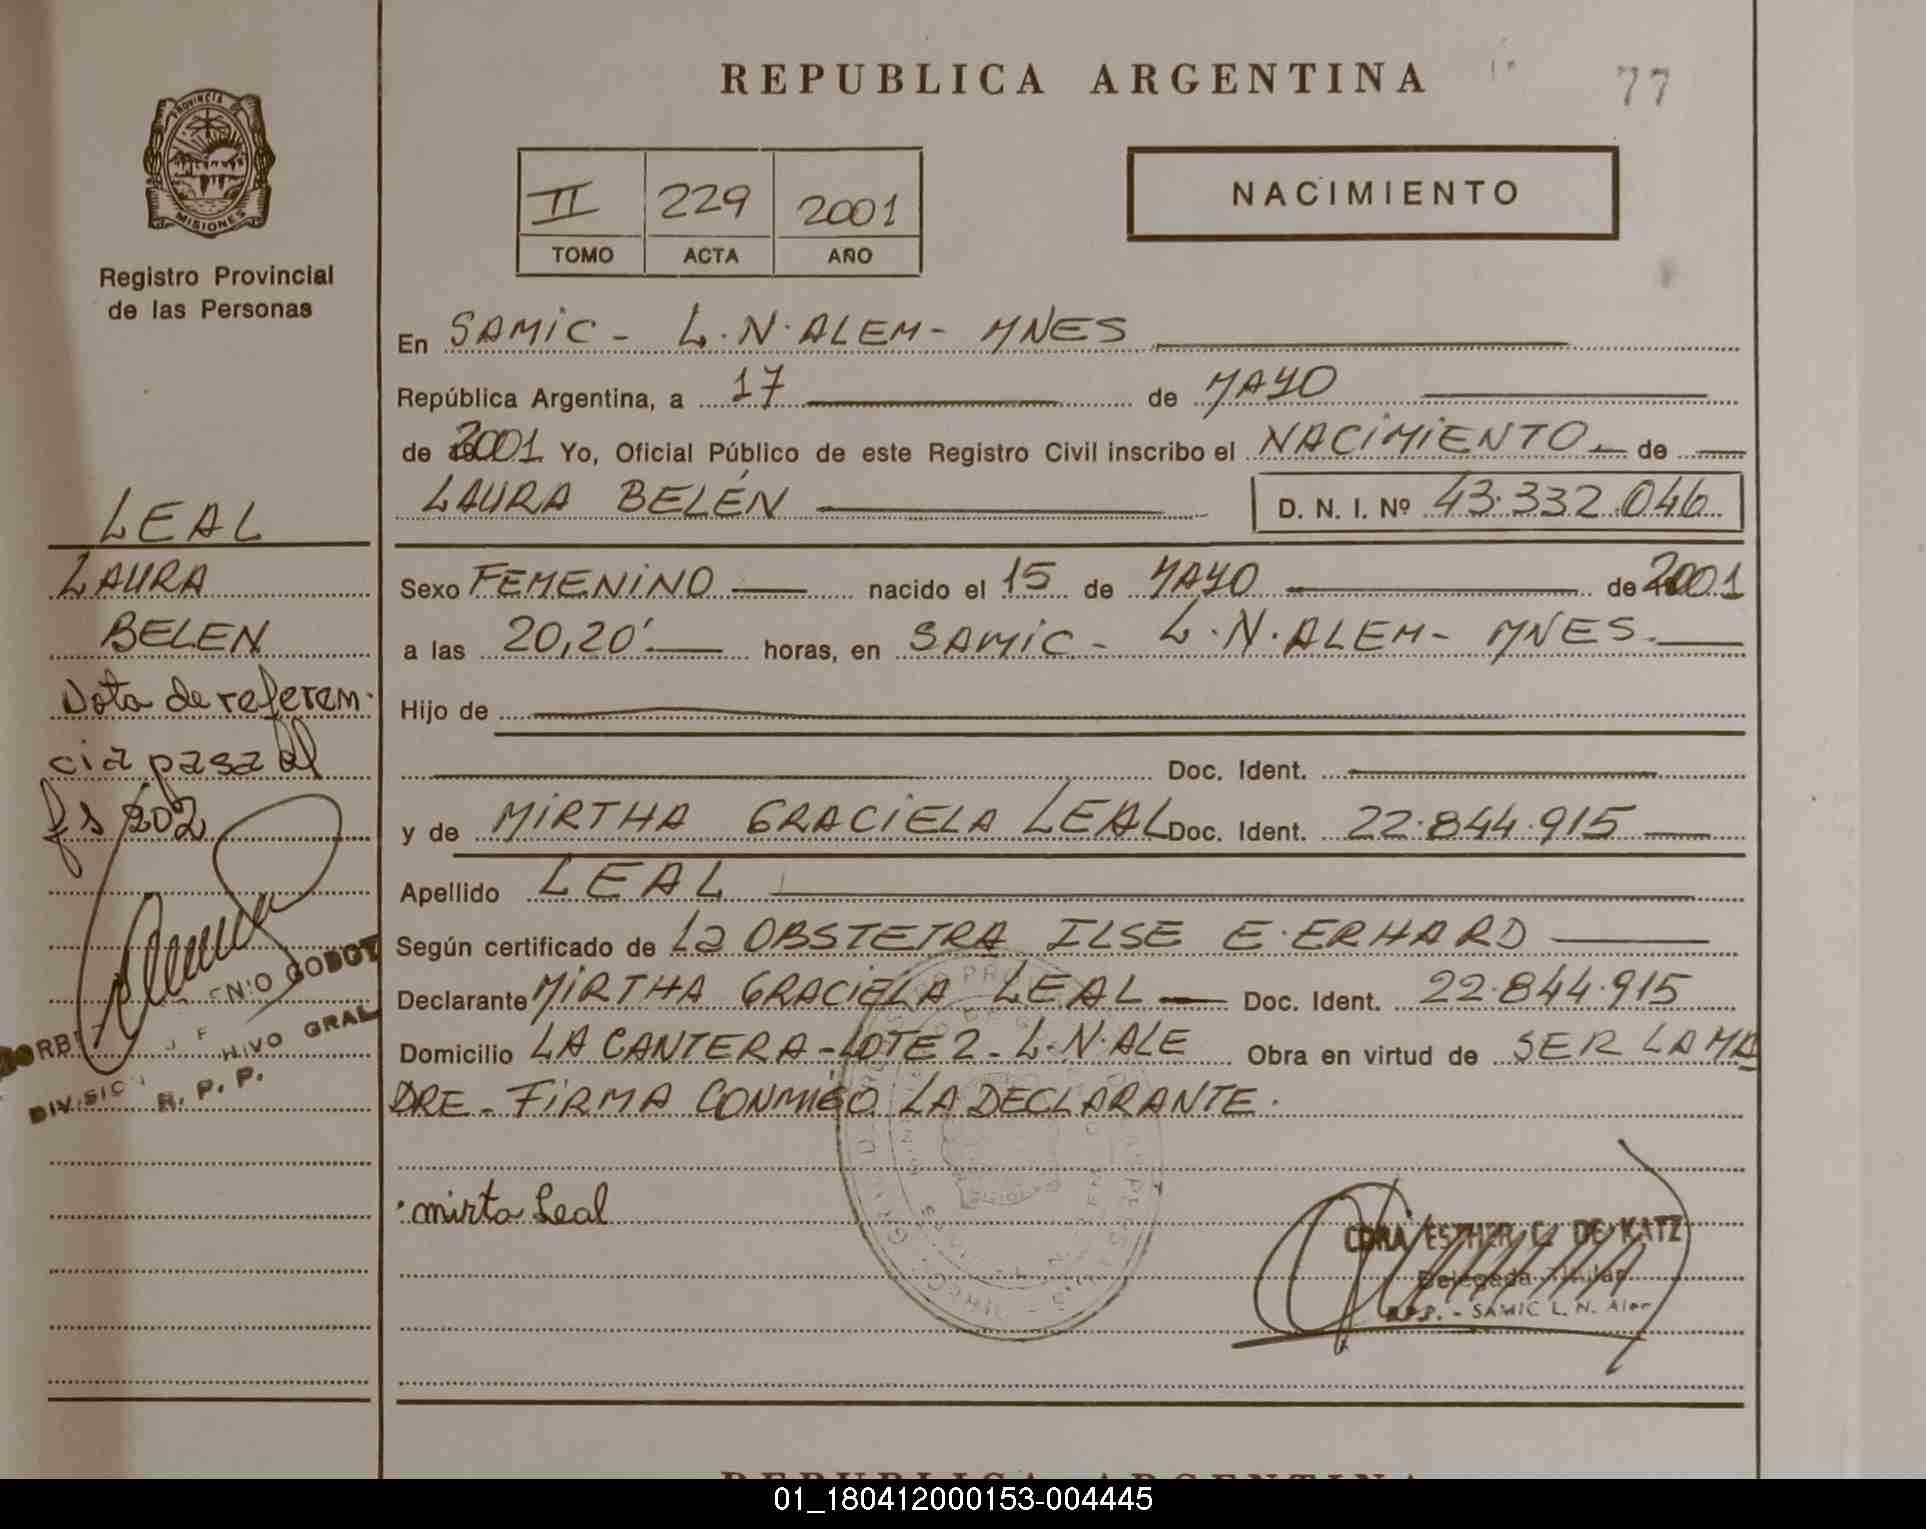 REPUBLICA ARGENTINA
77
PROVINCIA DE
MISIONES
Registro Provincial
de las Personas
II 229 2001
TOMO ACTA AÑO
NACIMIENTO
En SAMIC - L.N. ALEM - MNES
República Argentina, a 17 de MAYO
de 2001 Yo, Oficial Público de este Registro Civil inscribo el NACIMIENTO de
LAURA BELÉN D. N. I. Nº 43.332.046
LEAL
LAURA
BELEN
Nota de referen-
cia pasa al
fs 202
ENIO GODOY
DIVISIO HIVO GRAL
R. P. P.
Sexo FEMENINO nacido el 15 de MAYO de 2001
a las 20,20' horas, en SAMIC - L.N. ALEM - MNES.
Hijo de
Doc. Ident.
y de MIRTHA GRACIELA LEAL Doc. Ident. 22.844.915
Apellido LEAL
Según certificado de La OBSTETRA ILSE E. ERHARD
Declarante MIRTHA GRACIELA LEAL Doc. Ident. 22.844.915
Domicilio LA CANTERA - LOTE 2 - L.N. ALE Obra en virtud de SER LA MA
DRE - FIRMA CONMIGO LA DECLARANTE.
mirta Leal
CDRA ESTHER C. DE KATZ
Delegada Titular
R.P.P. - SAMIC L. N. Alem
REPUBLICA ARGENTINA
01_180412000153-004445